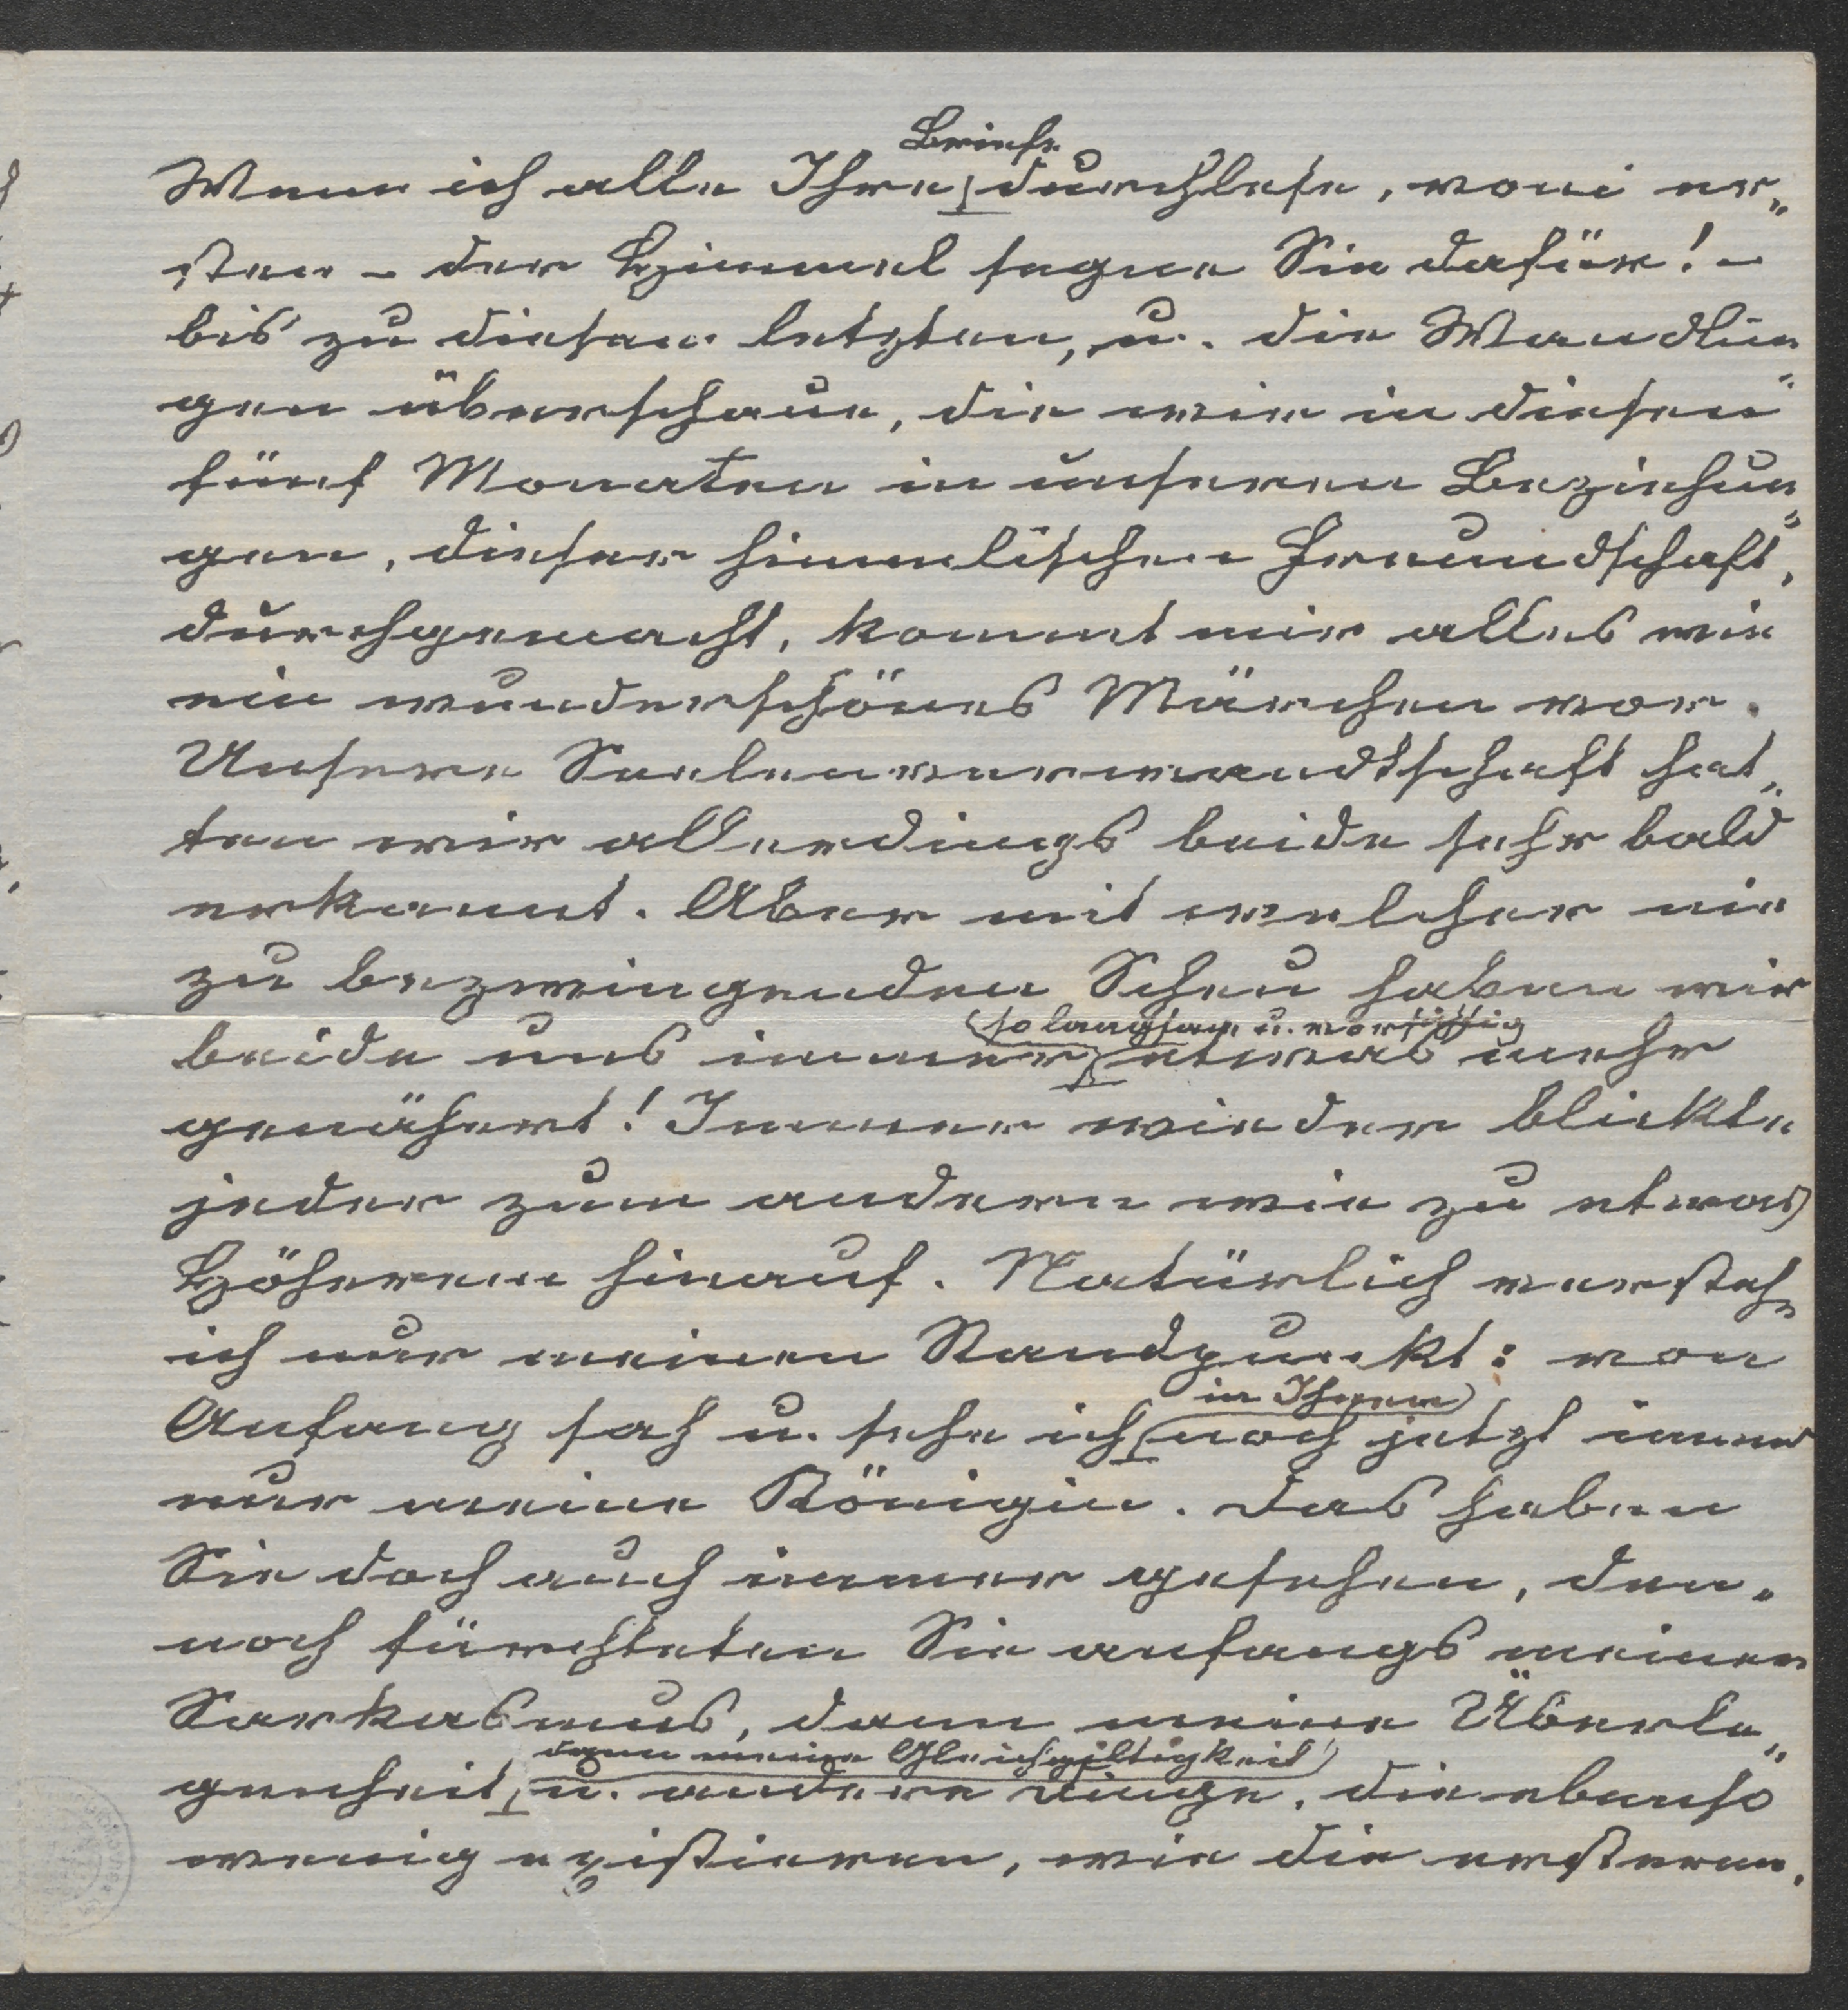 Briefe
Wenn ich alle Ihre durchlese, vom er„
sten – der Himmel segne Sie dafür! –
bis zu diesem letzten, u. die Wandlun„
gen überschaue, die wir in diesen
fünf Monaten in unseren Beziehun„
gen, dieser himmlischen Freundschaft,
durchgemacht, kommt mir alles wie
ein wunderschönes Märchen vor.
Unsere Seelenverwandtschaft hat„
ten wir allerdings beide sehr bald
erkannt. Aber mit welcher nie
zu bezwingenden Scheu haben wir
so langsam u. vorsichtig
beide uns immer etwas mehr
genähert! Immer wieder blickte
jeder zum andern wie zu etwas
Höherem hinauf. Natürlich versteh
ich nur meinen Standpunkt: von
in Ihnen
Anfang sah u. sehe ich noch jetzt immer
nur meine Königin. Das haben
Sie doch auch immer gesehen, den„
noch fürchteten Sie anfangs meinen
Sarkasmus, dann meine Überle„
dann meine Gleichgiltigkeit
genheit, u. andere Dinge, die ebenso
wenig existieren, wie die ersteren.